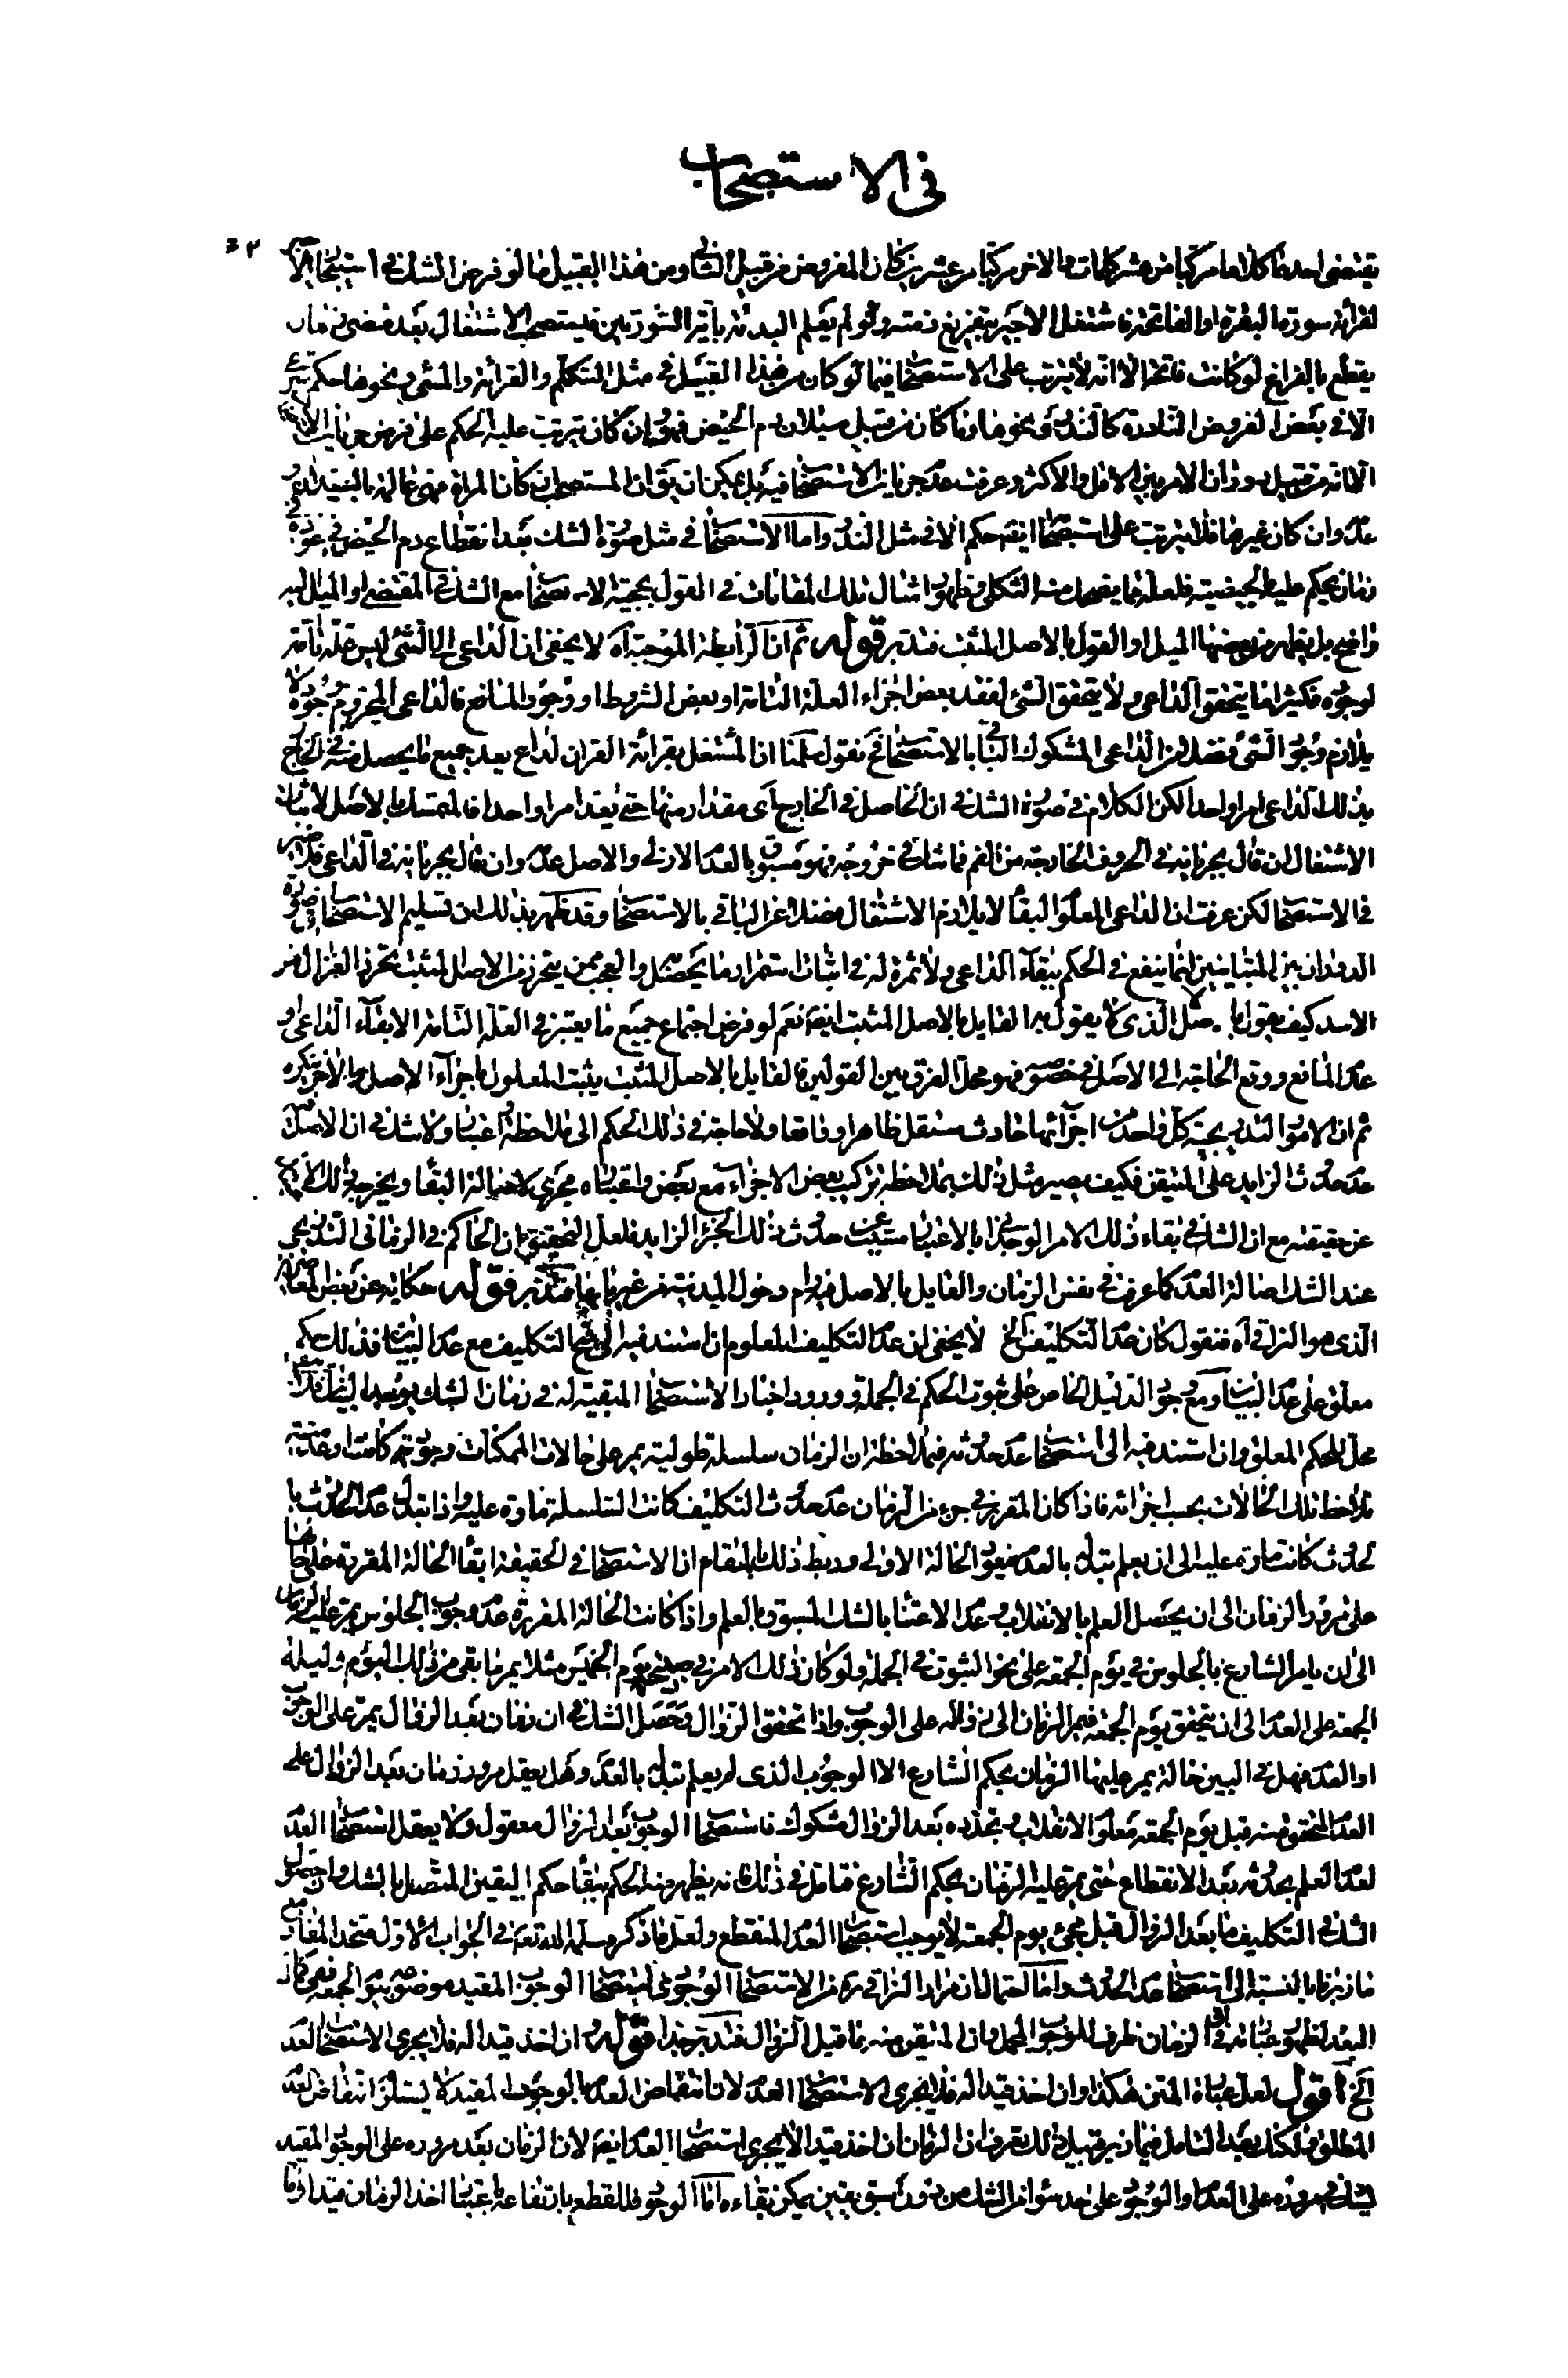 فى الاستصحاب
يقتضى احدهما كلاما مركبا من عشر كلمات والاخر مركبا من عشرين كان المفروض من قبيل الثانى ومن هذا القبيل ما لو فرض الشك فى استيجار
لقرائة سورة البقرة او الفاتحة فاشتغل الاجير بتفريغ ذمته ولم يعلم البدئة باية السورتين فيستصحب الاشتغال بعد مضى زمان
يقطع بالفراغ لو كانت فاتحة الا انه لا يترتب على الاستصحاب فيما لو كان من هذا القبيل فى مثل التكلم والقرائة والمشى ونحوها حكم شرعى
الا فى بعض الفروض النادرة كالنذر ونحوه واما ما كان من قبيل سيلان دم الحيض فهو وان كان يترتب عليه الحكم على فرض جريان
الا انه من قبيل دوران الامر بين الاقل والاكثر وعرفت عدم جريان الاستصحاب فيه بل يمكن ان يق ان المستصحب ان كان المراة فهى
عدم وان كان غيرها فلا يترتب على استصحابها ايضا حكم الا فى مثل النذر واما الاستصحاب فى مثل صورة الشك بعد انقطاع دم الحيض فى
زمان يحكم عليه بالحيضية فلعله مما يفصل منه التكلم وظهور امثال تلك المقامات فى القول بحجية الاستصحاب مع الشك فى المقتضى او الميل اليه
واضح بل يظهر من بعضها الميل او القول بالاصل المثبت فتدبر قوله ثم ان الرابطة الموجبة آه لا يخفى ان الداعى الى الشئ ليس علة تامة
لوجوده فكثيرا ما يتحقق الداعى ولا يتحقق الشئ لفقد بعض اجزاء العلة التامة او بعض الشروط او وجود المانع فالداعى المحرز وجوده لا
يلازم وجود الشئ فضلا من الداعى المشكوك الباقى بالاستصحاب فح نقول سلمنا ان المشتغل بقرائة القران لداع يعد جميع ما يحصل منه فى الخارج
بذلك الداعى امرا واحدا لكن الكلام فى صورة الشك فى ان الحاصل فى الخارج اى مقدار منها حتى يعد امرا واحدا فالمتمسك بالاصل لاثبات
الاشتغال ان قال بجريانه فى الحروف الخارجة من الفم فما شك فى خروجه فهو مسبوق بالعدم الازلى والاصل عدمه وان قال بجريانه فى الداعى فلا ضير
فى الاستصحاب لكن عرفت ان الداعى المعلوم البقاء لا يلازم الاشتغال فضلا عن الباقى بالاستصحاب وقد ظهر بذلك ان تسليم الاستصحاب فى صورة
الدوران بين المتباينين انما ينفع فى الحكم ببقاء الداعى ولا ثمرة له فى اثبات استمرار ما يحصل والعجب ممن يتحرز من الاصل المثبت تحرز الغزال من
الاسد كيف يقول بالاصل الذى لا يقول به القايل بالاصل المثبت ايضا نعم لو فرض اجتماع جميع ما يعتبر فى العلة التامة الا بقاء الداعى او
عدم المانع ووقع الحاجة الى الاصل فى خصوصه فهو محل الفرق بين القولين فالقايل بالاصل المثبت يثبت المعلول باجراء الاصل والاخر ينكره
ثم ان الامور التدريجية كل واحد من اجزائها حادث مستقل ظاهرا وواقعا ولا حاجة فى ذلك الحكم الى ملاحظة واعتبار ولا شك فى ان الاصل
عدم حدوث الزايد على المتيقن فكيف يصير مثل ذلك بملاحظة تركيب بعض الاجزاء مع بعض واعتباره مجرى لاصالة البقاء ويخرج
عن حقيقته مع ان الشك فى بقاء ذلك الامر الوجدانى بالاعتبار مسبب عن حدوث ذلك الجزء الزايد فلعل التحقيق ان الحاكم فى الزمانى التدريجى
عند الشك اصالة العدم كما عرفت فى نفس الزمان والقايل بالاصل فيه رام دخول المدينة من غير بابها فتدبر قوله حكاية عن بعض المعاصرين
الذى هو النراقى آه فنقول كان عدم التكليف الخ لا يخفى ان عدم التكليف المعلوم ان استند فيه الى قبح التكليف مع عدم البيان فذلك حكم
معلق على عدم البيان ومع وجود الدليل الخاص على ثبوت الحكم فى الجملة وورود اخبار الاستصحاب المبقية له فى زمان الشك يوجد البيان فلا
محل للحكم المعلق وان استند فيه الى استصحاب عدم حدوثه فبملاحظة ان الزمان سلسلة طولية يمر على حالات الممكنات وجودية كانت او عدمية
تلاحظ تلك الحالات بحسب اجزائه فاذا كان المقرر فى جزء من الزمان عدم حدوث التكليف كانت السلسلة مارة عليه واذا تبدل عدم الحدوث با
لحدوث كانت مارة عليه الى ان يعلم تبدله بالعدم فيعود الحالة الاولى وربط ذلك بالمقام ان الاستصحاب فى الحقيقة ابقاء الحالة المقررة على حالها
على مرور الزمان الى ان يحصل العلم بالانقلاب وعدم الاعتناء بالشك المسبوق بالعلم واذا كانت الحالة المقررة عدم وجوب الجلوس يمر عليه الزمان
الى ان يامر الشارع بالجلوس فى يوم الجمعة على نحو الثبوت فى الجملة ولو كان ذلك الامر فى صبيحة يوم الخميس مثلا يمر ما بقى من ذلك اليوم وليلة
الجمعة على العدم الى ان يتحقق يوم الجمعة فيمر الزمان الى زواله على الوجوب واذا تحقق الزوال وحصل الشك فى ان زمان بعد الزوال يمر على الوجوب
او العدم فهل فى البين حالة يمر عليها الزمان بحكم الشارع الا الوجوب الذى لم يعلم تبدله بالعدم وهل يعقل مرور زمان بعد الزوال على
العدم المحقق منه قبل يوم الجمعة معلوم الانقلاب وتجدده بعد الزوال مشكوك فاستصحاب الوجوب بعد الزوال معقول ولا يعقل استصحاب العدم
لعدم العلم بحدوثه بعد الانقطاع حتى يمر عليه الزمان بحكم الشارع فتامل فى ذلك فانه يظهر منه الحكم ببقاء حكم اليقين المتصل بالشك
الشك فى التكليف ما بعد الزوال قبل مجئ يوم الجمعة لا يوجب استصحاب العدم المنقطع ولعل ما ذكره سلمه الله تعه فى الجواب الاول متحد المفاد مع
ما زبرنا بالنسبة الى استصحاب عدم الحدوث واما احتمال ان مراد النراقى ره من الاستصحاب الوجودى استصحاب الوجوب المقيد موضوعه بيوم الجمعة ففى كمال
البعد لظهور عباراته فى ان الزمان ظرف للوجوب المجمل وان المتيقن منه ما قبل الزوال فتدبر جدا قوله ان اخذ قيدا له فلا يجرى الاستصحاب العدم
الخ اقول لعل عبارة المتن هكذا وان اخذ قيدا له فلا يجرى الاستصحاب العدم لان انتقاض العدم بالوجود المقيد لا يستلزم انتقاض العدم
المطلق ولكنك بعد التامل فيما زبر قبيل ذلك تعرف ان الزمان ان اخذ قيدا لا يجرى استصحاب العدم ايضا لان الزمان بعد مروره على الوجود المقيد
يشك فى مروره على العدم او الوجود على حد سواء من الشك من دون سبق يقين يمكن بقاءه اما الوجود فللقطع بارتفاعه باعتبار اخذ الزمان قيدا واما